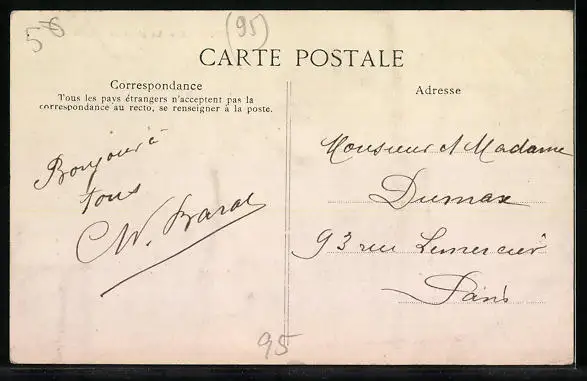 56
(95)
CARTE POSTALE
Correspondance
Tous les pays étrangers n'acceptent pas la
correspondance au recto, se renseigner à la poste.
Bonjour à
tous
Adresse
Monsieur et Madame
Dumax
93 rue Lemercier
Paris
95